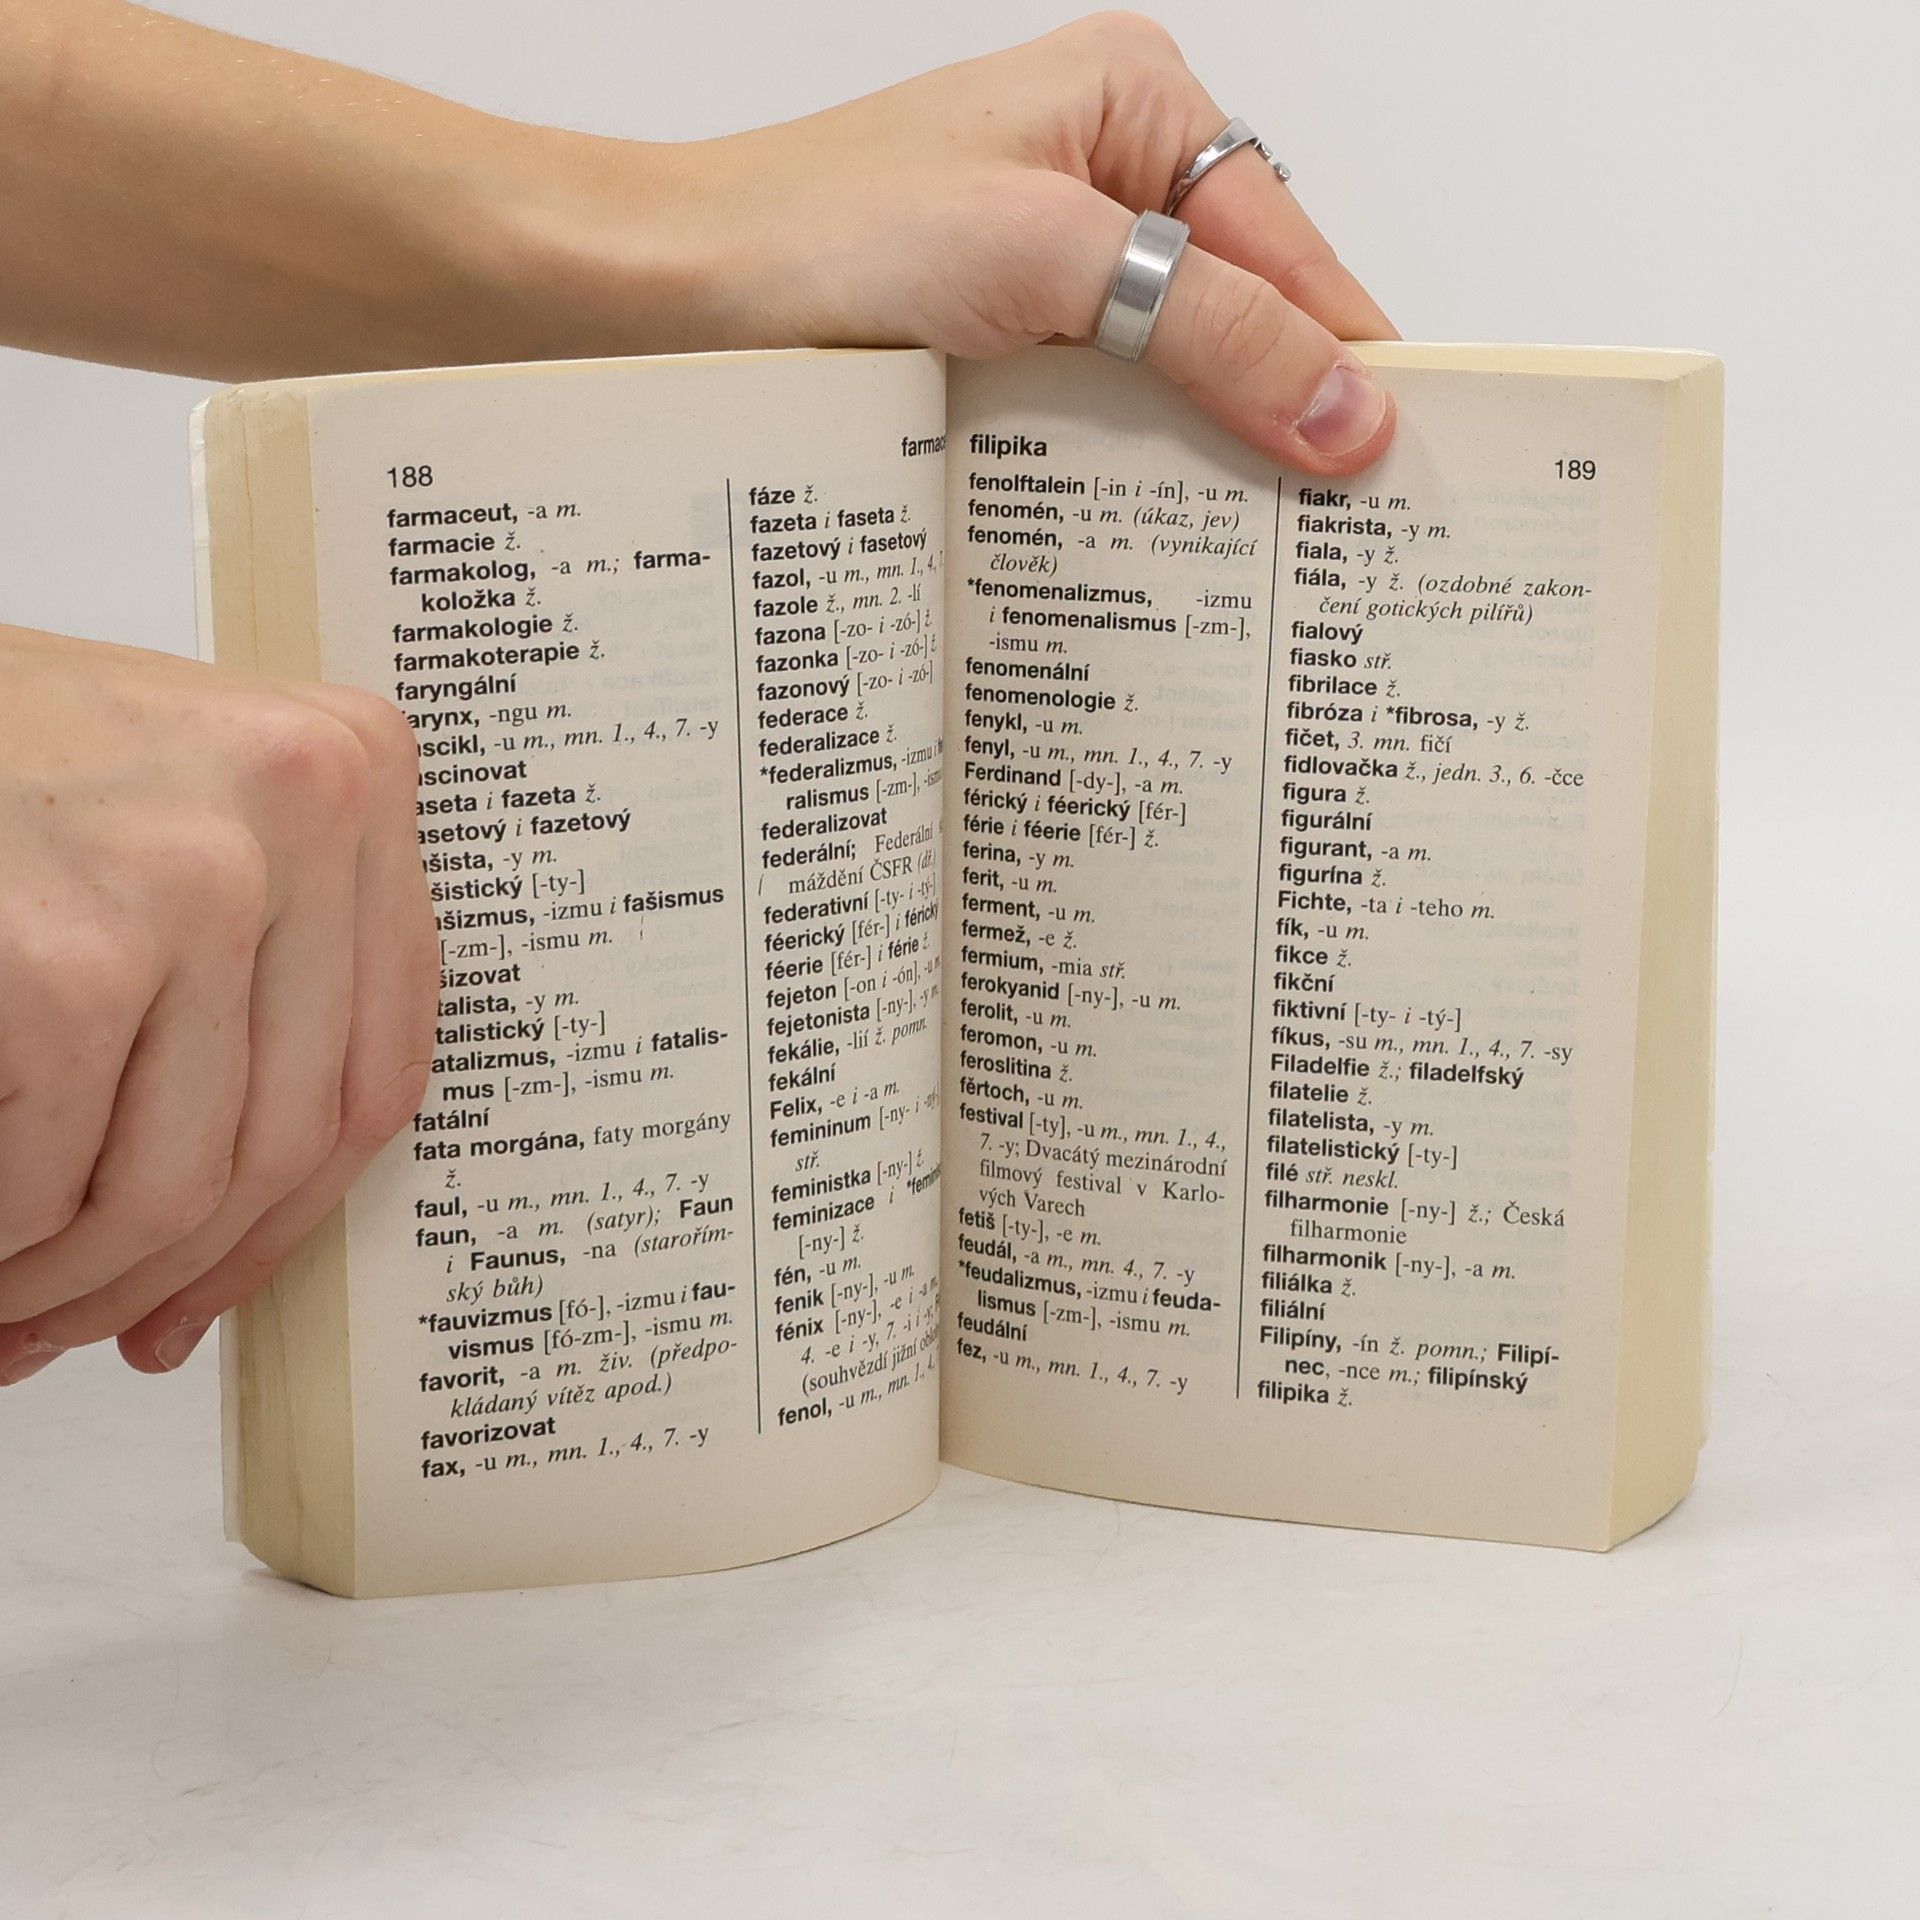 188
farmaceut, -a m.
farmacie ž.
farmakolog, -a m.; farma-
koložka ž.
farmakologie ž.
farmakoterapie ž.
faryngální
-ngu m.
-u m., mn. 1., 4., 7. -y
i fazeta ž.
i fazetový
-y m.
[-ty-]
-izmu i fašismus
[-zm-], -ismu m.
-y m.
[-ty-]
-izmu i fatalis-
mus [-zm-], -ismu m.
fatální
fata morgána, faty morgány
ž.
faul, -u m., mn. 1., 4., 7. -y
faun, -a m. (satyr); Faun
i Faunus, -na (starořím-
ský bůh)
*fauvizmus [fó-], -izmu i fau-
vismus [fó-zm-], -ismu m.
favorit, -a m. živ. (předpo-
kládaný vítěz apod.)
favorizovat
fax, -u m., mn. 1., 4., 7. -y
fáze ž.
fazeta i faseta ž.
fazetový i fasetový
fazol, -u m., mn. 1., 4.,
fazole ž., mn. 2. -lí
fazona [-zo- i -zó-] ž.
fazonka [-zo- i -zó-] ž.
fazonový [-zo- i -zó-]
federace ž.
federalizace ž.
*federalizmus, -izmu i
ralismus [-zm-],
federalizovat
federální; Federální
máždění ČSFR (dř.)
federativní [-ty- i -tý-]
féerický [fér-] i férický
féerie [fér-] i férie ž.
fejeton [-on i -ón], -u m.
fejetonista [-ny-], -y m.
fekálie, -lií ž. pomn.
fekální
Felix, -e i -a m.
femininum [-ny- i -ný-]
stř.
feministka [-ny-] ž.
feminizace i
[-ny-] ž.
fén, -u m.
fenik [-ny-], -u m.
fénix [-ny-], -e i -a m.
4. -e i -y, 7. -i i -y;
(souhvězdí jižní
fenol, -u m., mn. 1., 4.
filipika
189
fenolftalein [-in i -ín], -u m.
fenomén, -u m. (úkaz, jev)
fenomén, -a m. (vynikající
člověk)
*fenomenalizmus, -izmu
i fenomenalismus [-zm-],
-ismu m.
fenomenální
fenomenologie ž.
fenykl, -u m.
fenyl, -u m., mn. 1., 4., 7. -y
Ferdinand [-dy-], -a m.
férický i féerický [fér-]
férie i féerie [fér-] ž.
ferina, -y m.
ferit, -u m.
ferment, -u m.
fermež, -e ž.
fermium, -mia stř.
ferokyanid [-ny-], -u m.
ferolit, -u m.
feromon, -u m.
feroslitina ž.
fěrtoch, -u m.
festival [-ty], -u m., mn. 1., 4.,
7. -y; Dvacátý mezinárodní
filmový festival v Karlo-
vých Varech
fetiš [-ty-], -e m.
feudál, -a m., mn. 4., 7. -y
*feudalizmus, -izmu i feuda-
lismus [-zm-], -ismu m.
feudální
fez, -u m., mn. 1., 4., 7. -y
fiakr, -u m.
fiakrista, -y m.
fiala, -y ž.
fiála, -y ž. (ozdobné zakon-
čení gotických pilířů)
fialový
fiasko stř.
fibrilace ž.
fibróza i *fibrosa, -y ž.
fičet, 3. mn. fičí
fidlovačka ž., jedn. 3., 6. -čce
figura ž.
figurální
figurant, -a m.
figurína ž.
Fichte, -ta i -teho m.
fík, -u m.
fikce ž.
fikční
fiktivní [-ty- i -tý-]
fíkus, -su m., mn. 1., 4., 7. -sy
Filadelfie ž.; filadelfský
filatelie ž.
filatelista, -y m.
filatelistický [-ty-]
filé stř. neskl.
filharmonie [-ny-] ž.; Česká
filharmonie
filharmonik [-ny-], -a m.
filiálka ž.
filiální
Filipíny, -ín ž. pomn.; Filipí-
nec, -nce m.; filipínský
filipika ž.